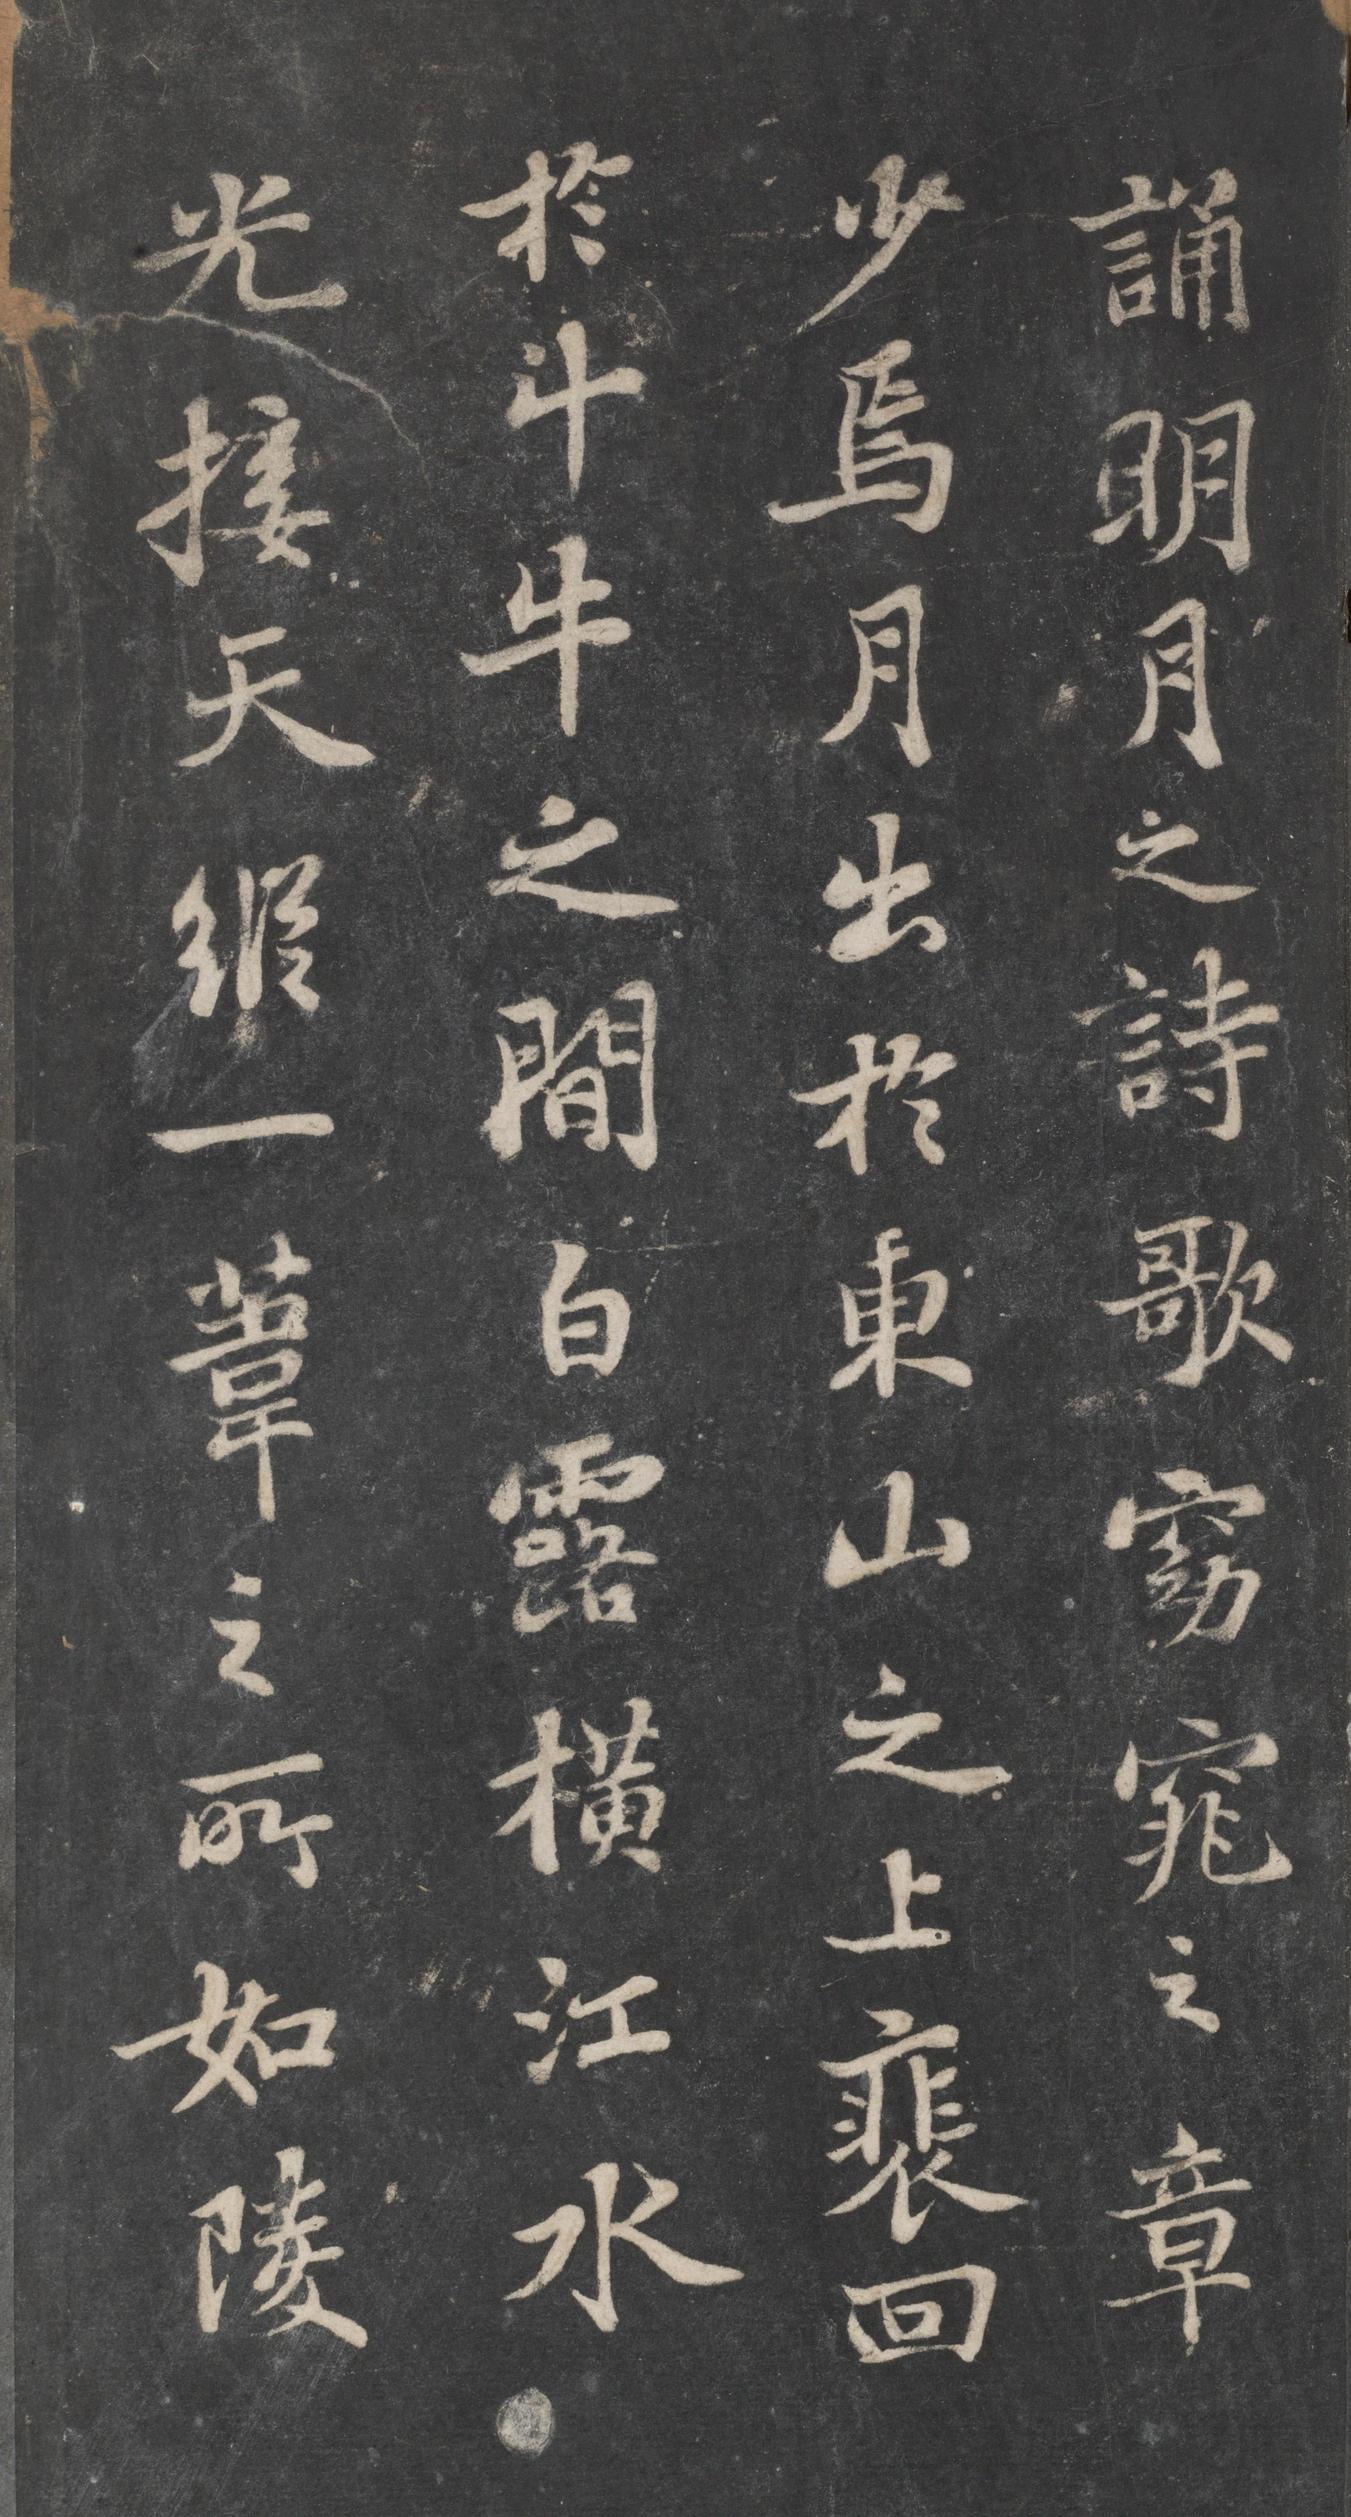 誦明月之詩歌窈窕之章
少焉月出於東山之上裴回
於斗牛之間白露橫江水
光接天縱一葦之所如陵